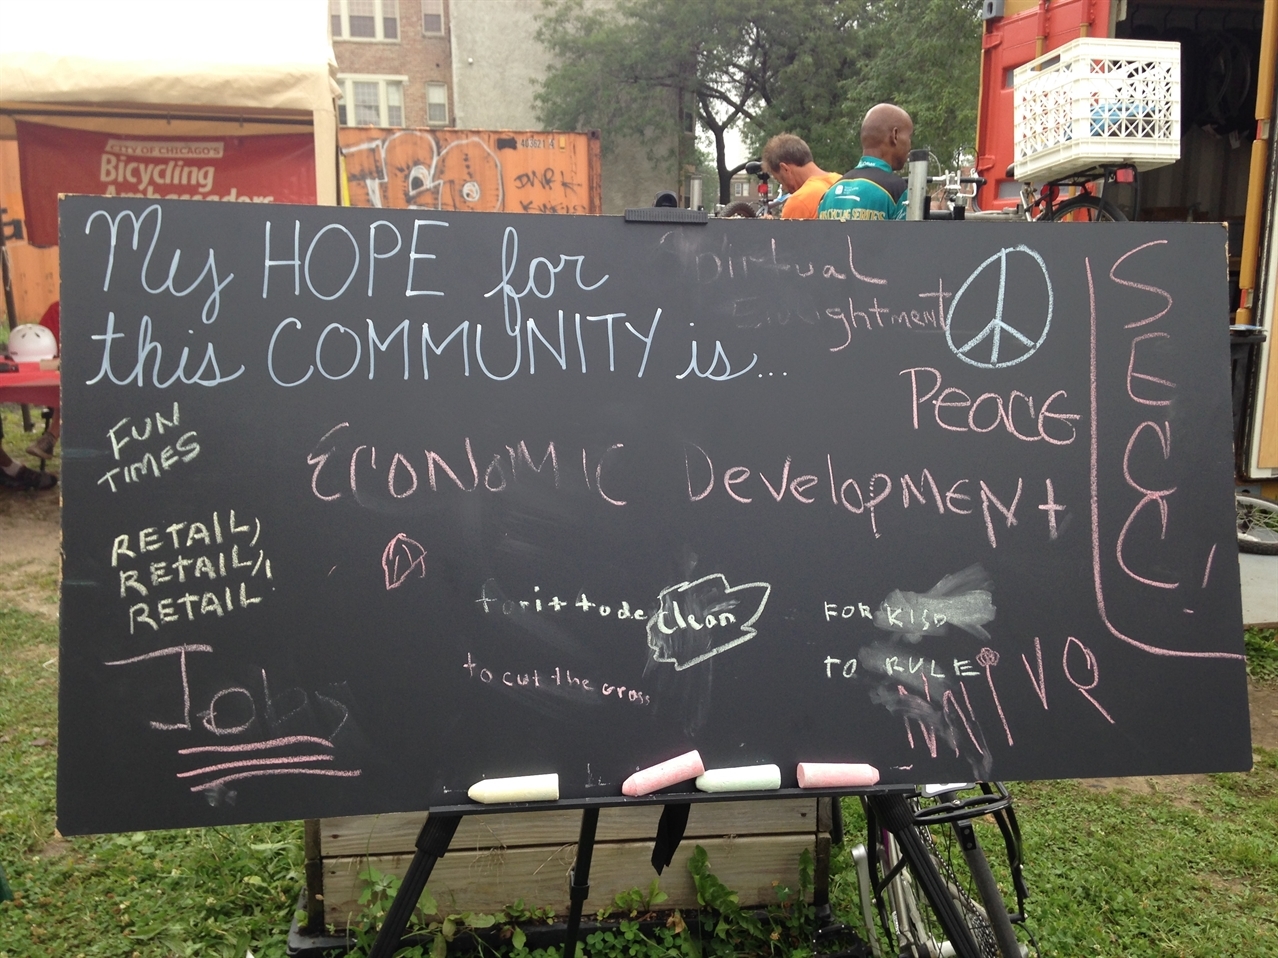 CITY OF CHICAGO'S
Bicycling
Ambassadors
403621
My HOPE for
this COMMUNITY is...
Spiritual
Enlightment
PEACE
SECC!
FUN
TIMES
ECONOMIC Development
RETAIL,
RETAIL,
RETAIL
Jobs
clean
to cut the grass
FOR KISD
TO RULE